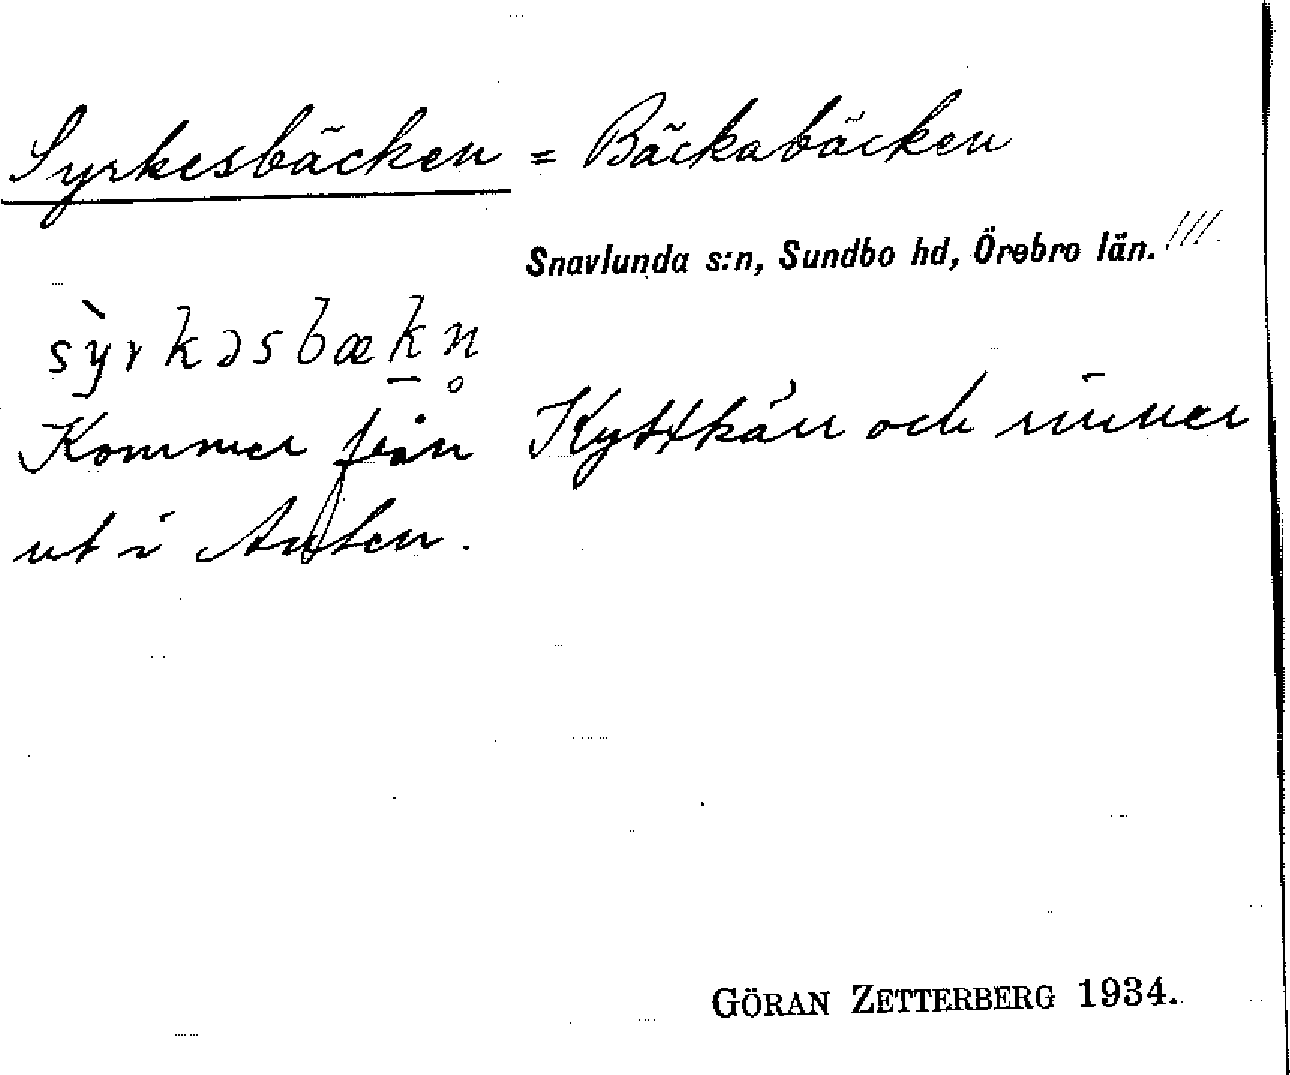 Syrkesbäcken = Bäckabäcken
Snavlunda s:n, Sundbo hd, Örebro län. ///
sỳrkəsbæk̠n̥
Kommer från Kyttkärr och rinner
ut i Anten.
GÖRAN ZETTERBERG 1934.